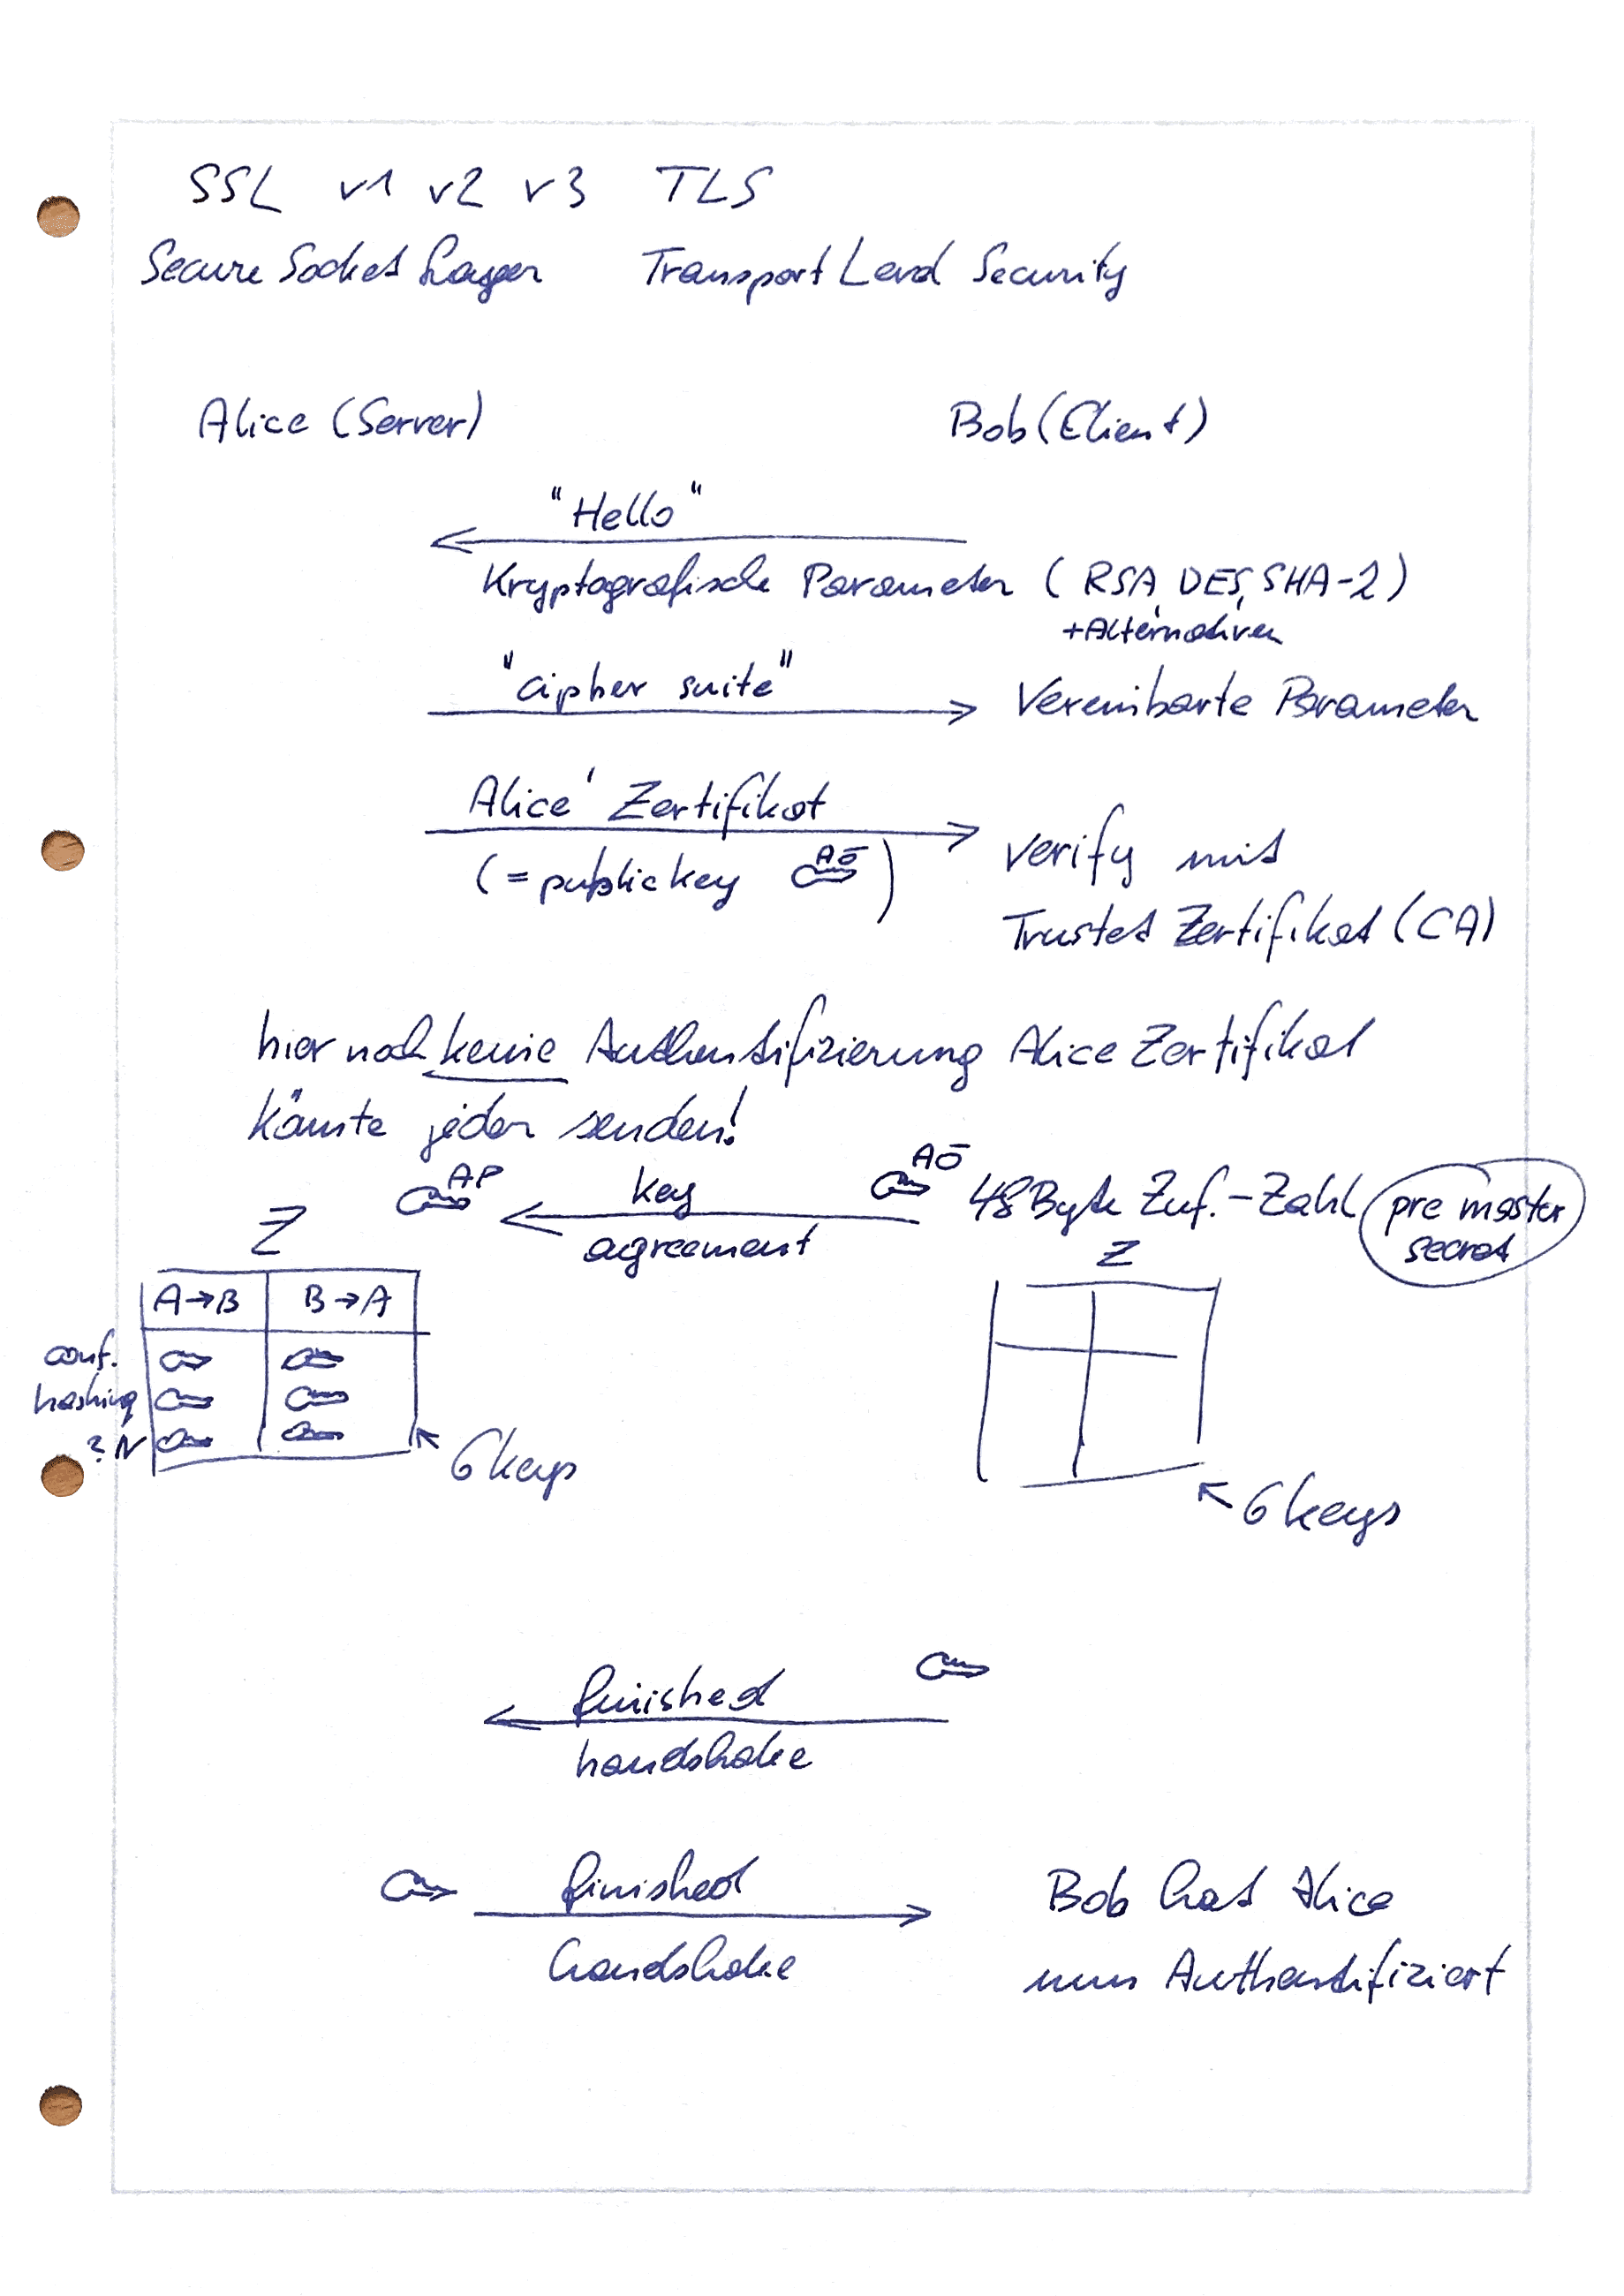 SSL v1 v2 v3 TLS
Secure Socket Layer Transport Level Security
Alice (Server) Bob (Client)
"Hello"
Kryptografische Parameter (RSA, DES, SHA-2)
+Alternativen
"cipher suite" Vereinbarte Parameter
Alice' Zertifikat
(= public key AÖ)
verify mit
Trustet Zertifikat (CA)
hier noch keine Authentifizierung Alice Zertifikat
könnte jeder senden!
AP key AÖ 48 Byte Zuf.-Zahl pre master
agreement secret
Z Z
A→B B→A
conf.
hashing
? IV
6 keys
6 keys
finished
handshake
finished
handshake
Bob hat Alice
nun Authentifiziert